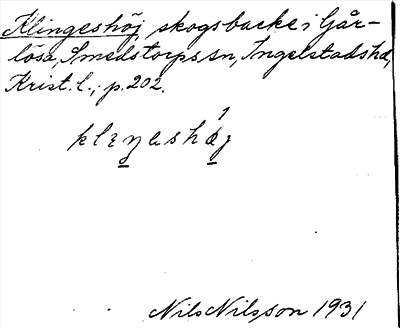 Klingeshöj, skogsbacke i Går-
lösa, Smedstorps sn, Ingelstads hd,
Krist. l.; p. 202.
Nils Nilsson 1931